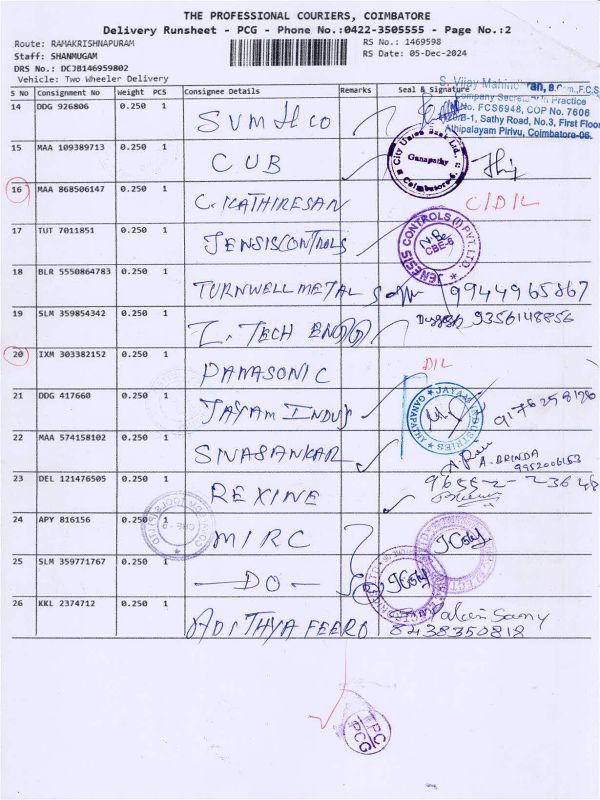 THE PROFESSIONAL COURIERS, COIMBATORE
Delivery Runsheet - PCG - Phone No.:0422-3505555 - Page No.:2
Route: RAMAKRISHNAPURAM
RS No.: 1469598
Staff: SHANMUGAM
RS Date: 05-Dec-2024
DRS No.: DCJB146959802
Vehicle: Two Wheeler Delivery
S No Consignment No Weight PCS Consignee Details Remarks Seal & Signature
S. Vijay Mahindran, B.Com.,F.C.S
Company Secretary in Practice
No. FCS6948, COP No. 7606
B-1, Sathy Road, No.3, First Floor
Athipalayam Pirivu, Coimbatore-06.
14 DDG 926806 0.250 1 SVMH CO
15 MAA 109389713 0.250 1 CUB
City Union Bank Ltd.,
Ganapathy
Coimbatore-6.
16 MAA 868506147 0.250 1 C. KATHIRESAN C/DIL
17 TUT 7011851 0.250 1 JENSISCONTROLS
JENESIS CONTROLS (I) PVT. LTD.
CBE-6
18 BLR 5550864783 0.250 1 TURNWELL METAL 9944965867
19 SLM 359854342 0.250 1 Z. TECH ENGG 9356148856
20 IXM 303382152 0.250 1 PANASONIC DIL
21 DDG 417660 0.250 1 JAYAM INDUS
JAYAM INDUSTRIES
GANAPATHY
22 MAA 574158102 0.250 1 SIVASANKAR
A. BRINDA
9952006153
23 DEL 121476505 0.250 1 REXINE 96552-23648
24 APY 816156 0.250 1 MIRC
25 SLM 359771767 0.250 1 DO
26 KKL 2374712 0.250 1 ADITHYA FEERO
8438350818
TPC
PCG